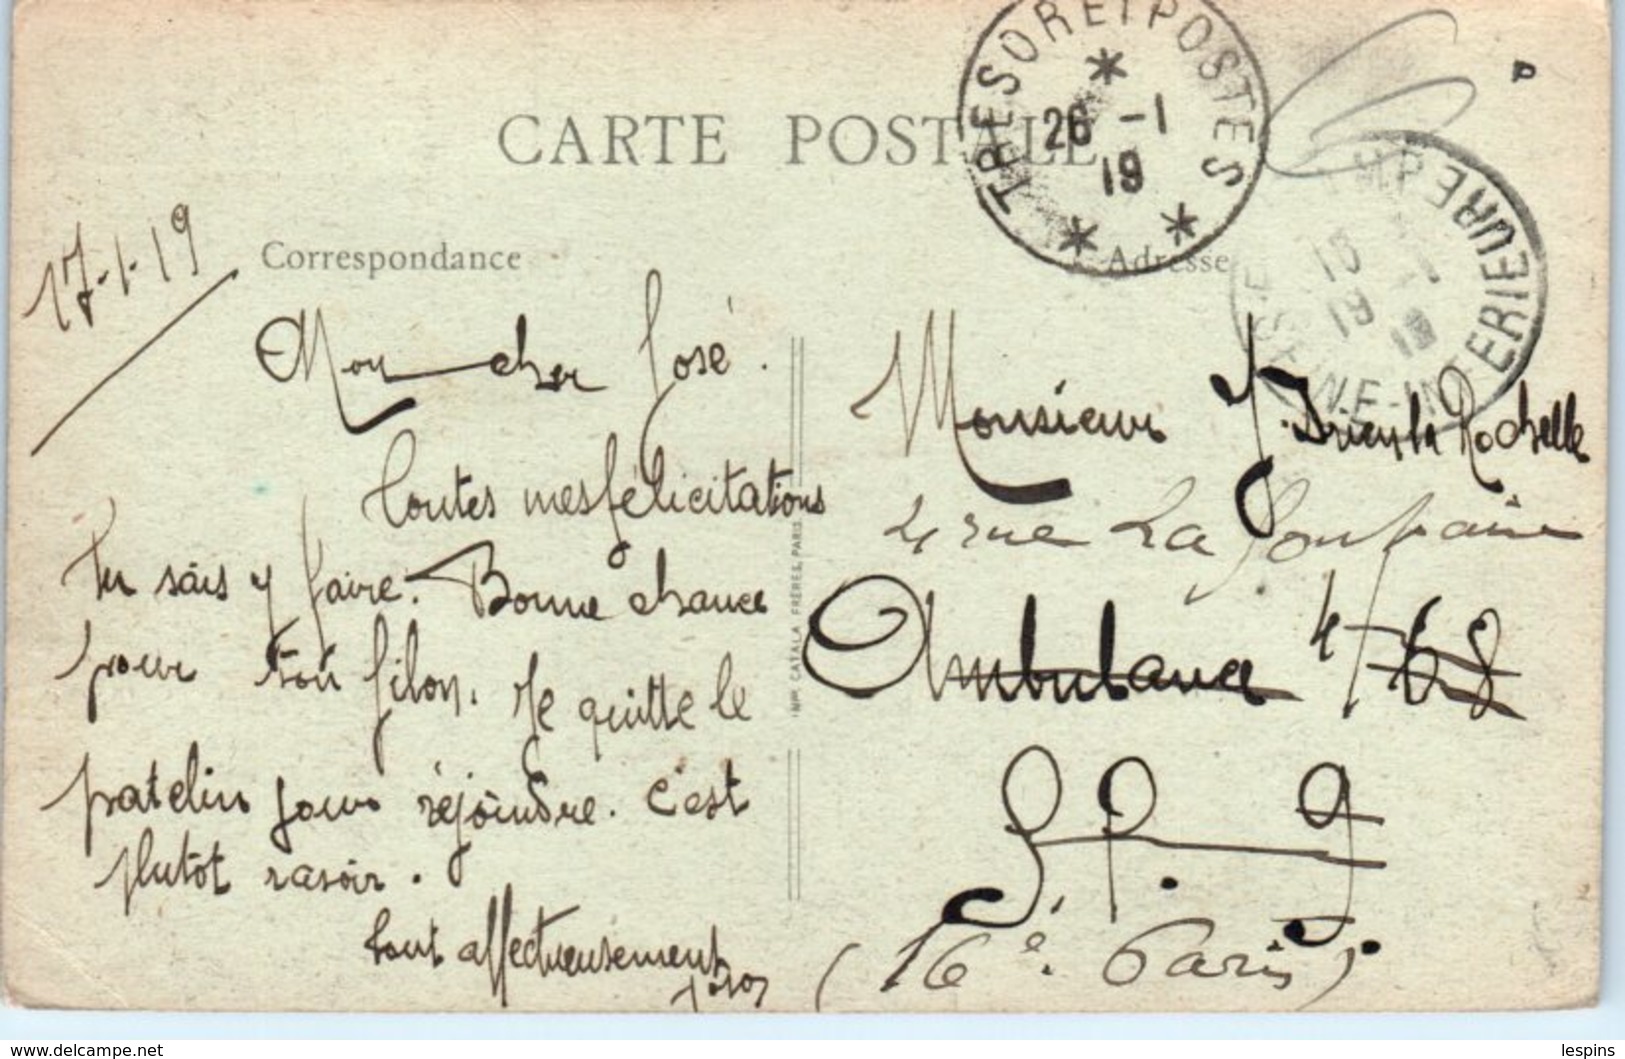 CARTE POSTALE
TRESOR ET POSTES
26 -1
19
Correspondance
Adresse
17-1-19
Mon cher José.
Toutes mes félicitations
Tu sais y faire. Bonne chance
pour ton filon. Je quitte le
patelin pour rejoindre. C'est
plutôt rasoir.
tout affectueusement
IMP. CATALA FRERES, PARIS
Monsieur J. Drieu la Rochelle
4 rue La Fontaine
Ambulance 4/68
S.P. 9
(16e. Paris)
SEINE-INFERIEURE
19
lespins
delcampe.net